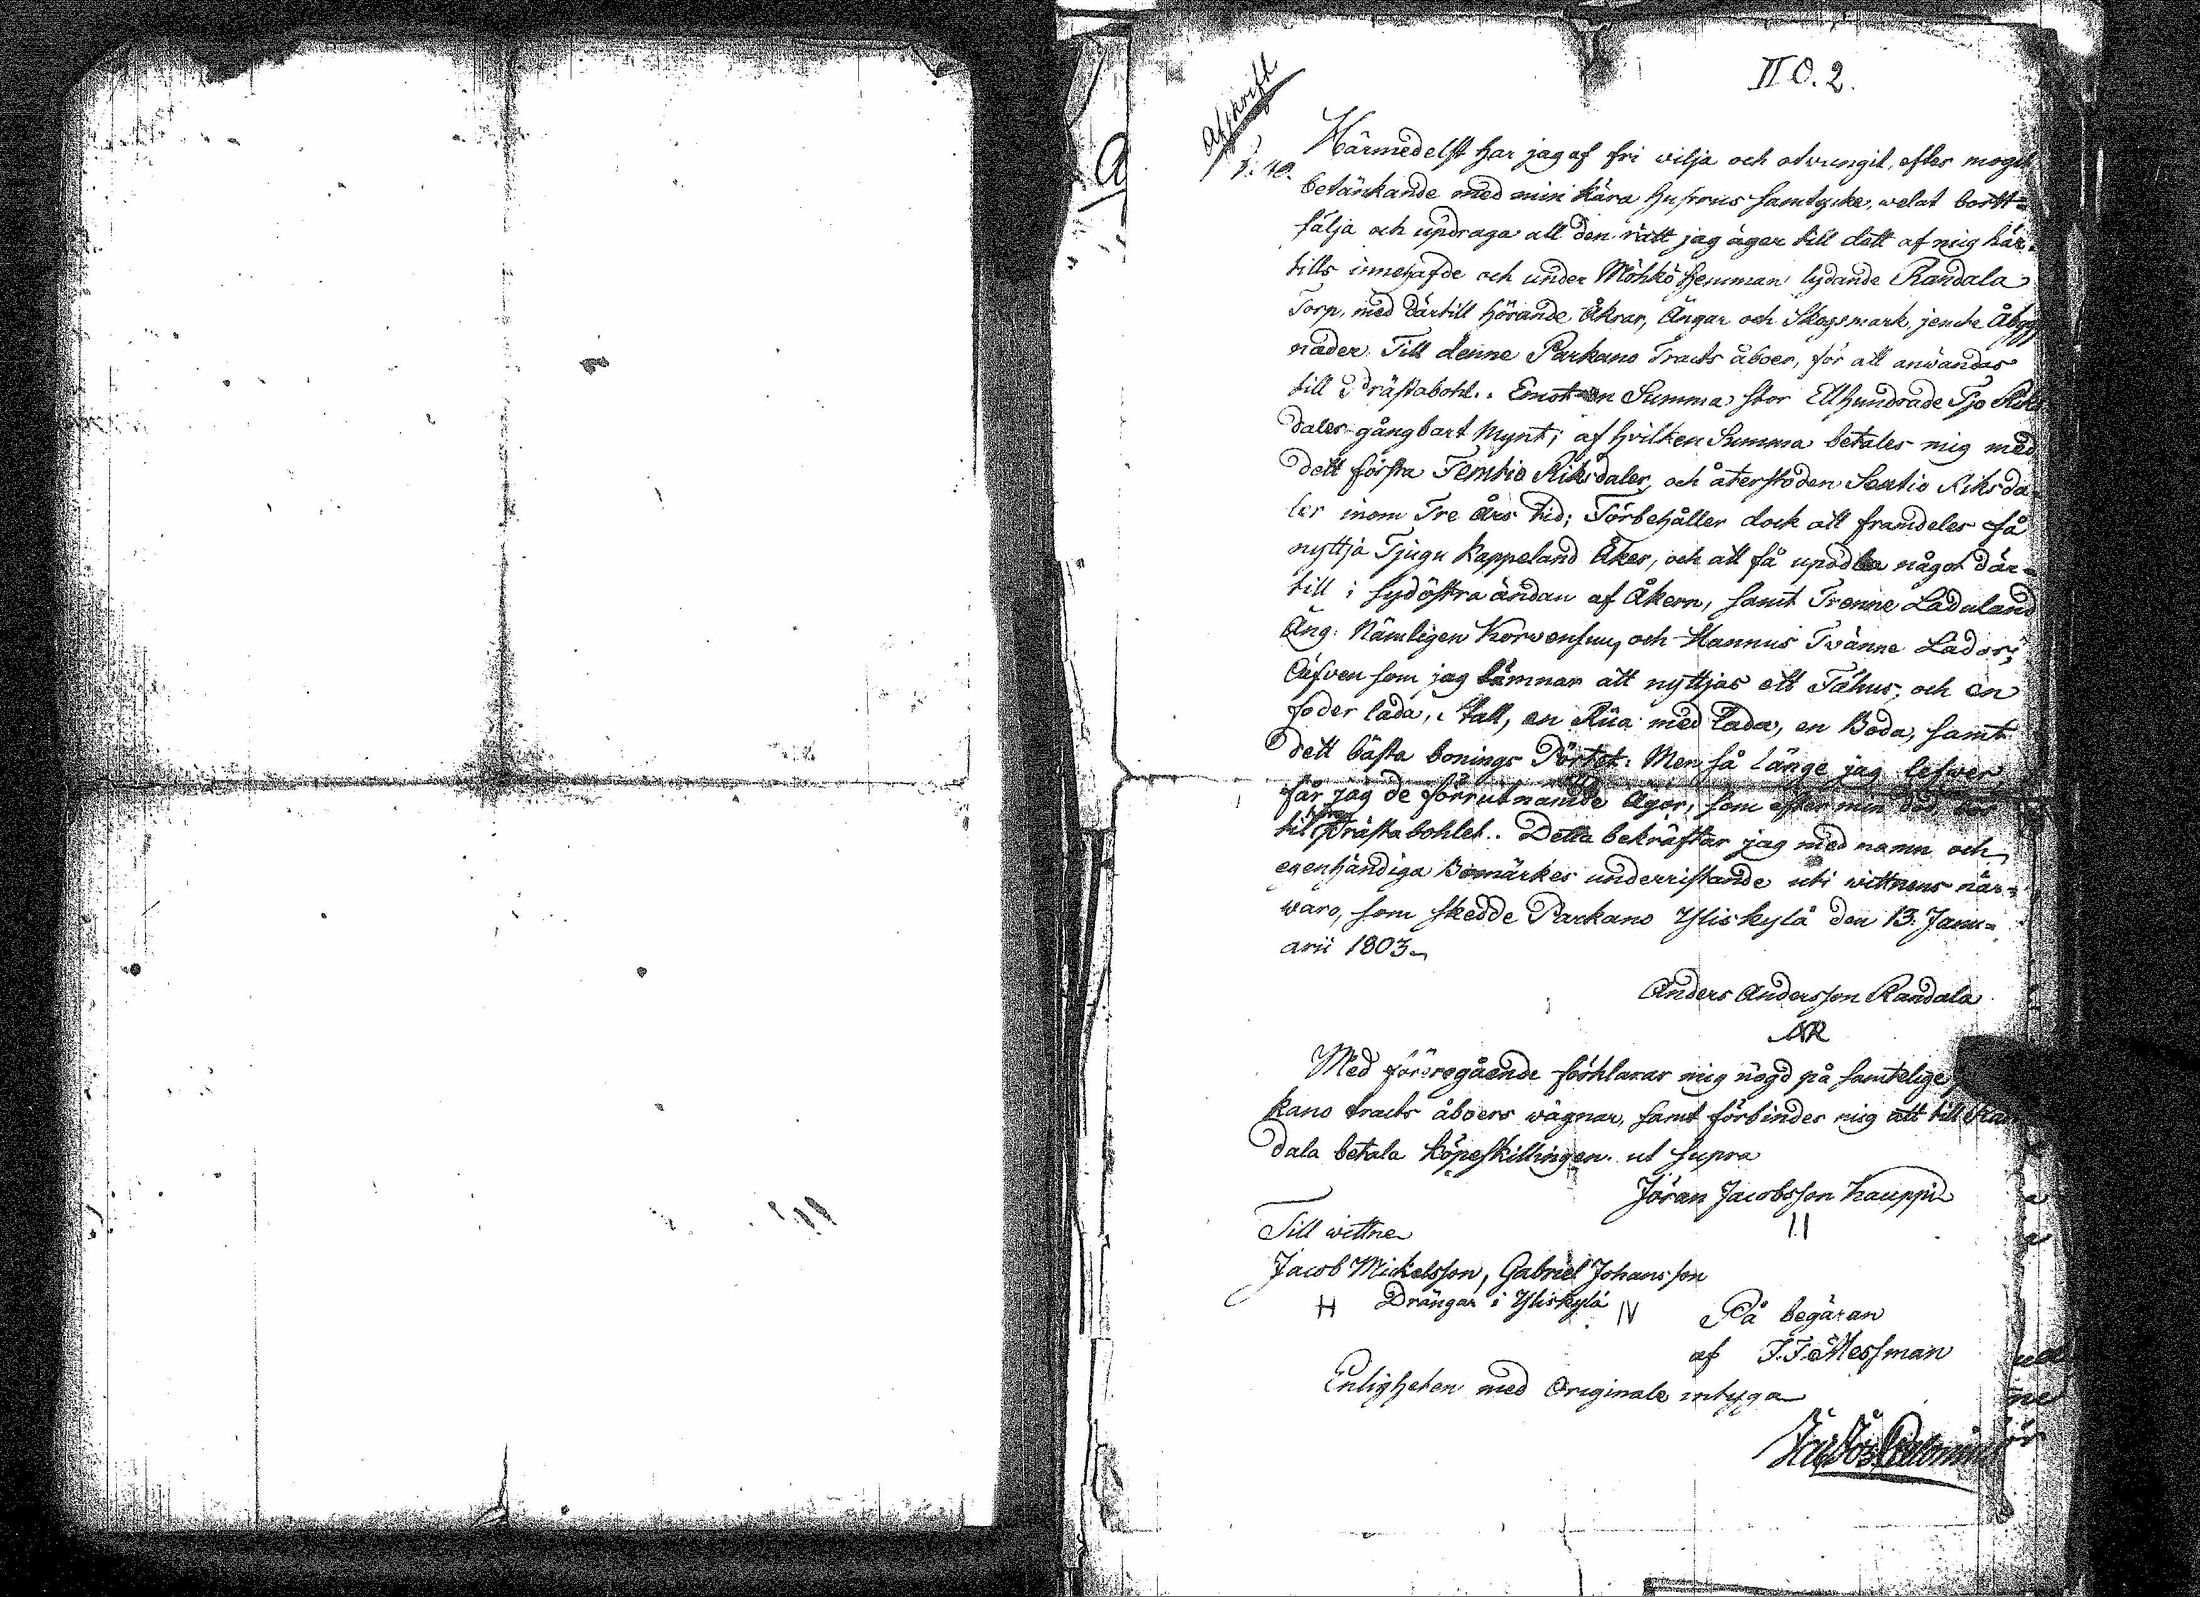 II O. 2.
Afskrift
A
§. 40.
Härmedelst har jag af fri wilja och otvungit, efter moget
betänkande med min kära hustrus samtycke, welat bortt=
sälja och updraga all den rätt jag äger till dett af mig här=
tills innehafde och under Möhkö hemman lydande Randala
Torp, med därtill hörande Åkrar, Ängar och Skogsmark, jemte Åbygg
nader. Till denne Parkano Tracts åboer, för att användas
till Prästabohl. Emot en Summa stor Etthundrade Tjo Riks
daler gångbart Mynt; af hvilken Summa betales mig med
dett första Femtio Riksdaler, och återstoden Sextio Riksda=
ler inom Tre års tid; Förbehåller dock att framdeles få
nyttja Tjugu kappeland Åker, och att få updla något där=
till i sydöstra ändan af Åkern, samt Trenne Laduland
Äng. Nämligen Korwensuu, och Mannus Tvänne Lador;
Äfven som jag lämnar att nyttjas ett Fähus, och en
foder lada, Stall, en Riia med lada, en Boda, samt
dett bästa bonings Pörtet. Men så länge jag lefwer,
får jag de förrutnamde Ägor, som efter min död
til Prästabohlet. Detta bekräftar jag med namn och
egenhändiga Bomärkes underristande uti wittnens när=
waro, som skedde Parkano Yliskylä den 13. Janu=
arii 1803.
Anders Andersson Randala
AR
Med föregående förklarar mig nögd på samtelige
kano tracts åboers wägnar, samt förbinder mig att till Ran
dala betala köpeskillingen. ut supra
Jöran Jacobsson Kauppi
II
Till wittne
Jacob Mickelsson, Gabriel Johansson
H Drängar i Yliskylä IV
På begäran
af F. F. Messman
Enligheten med Originale intyga